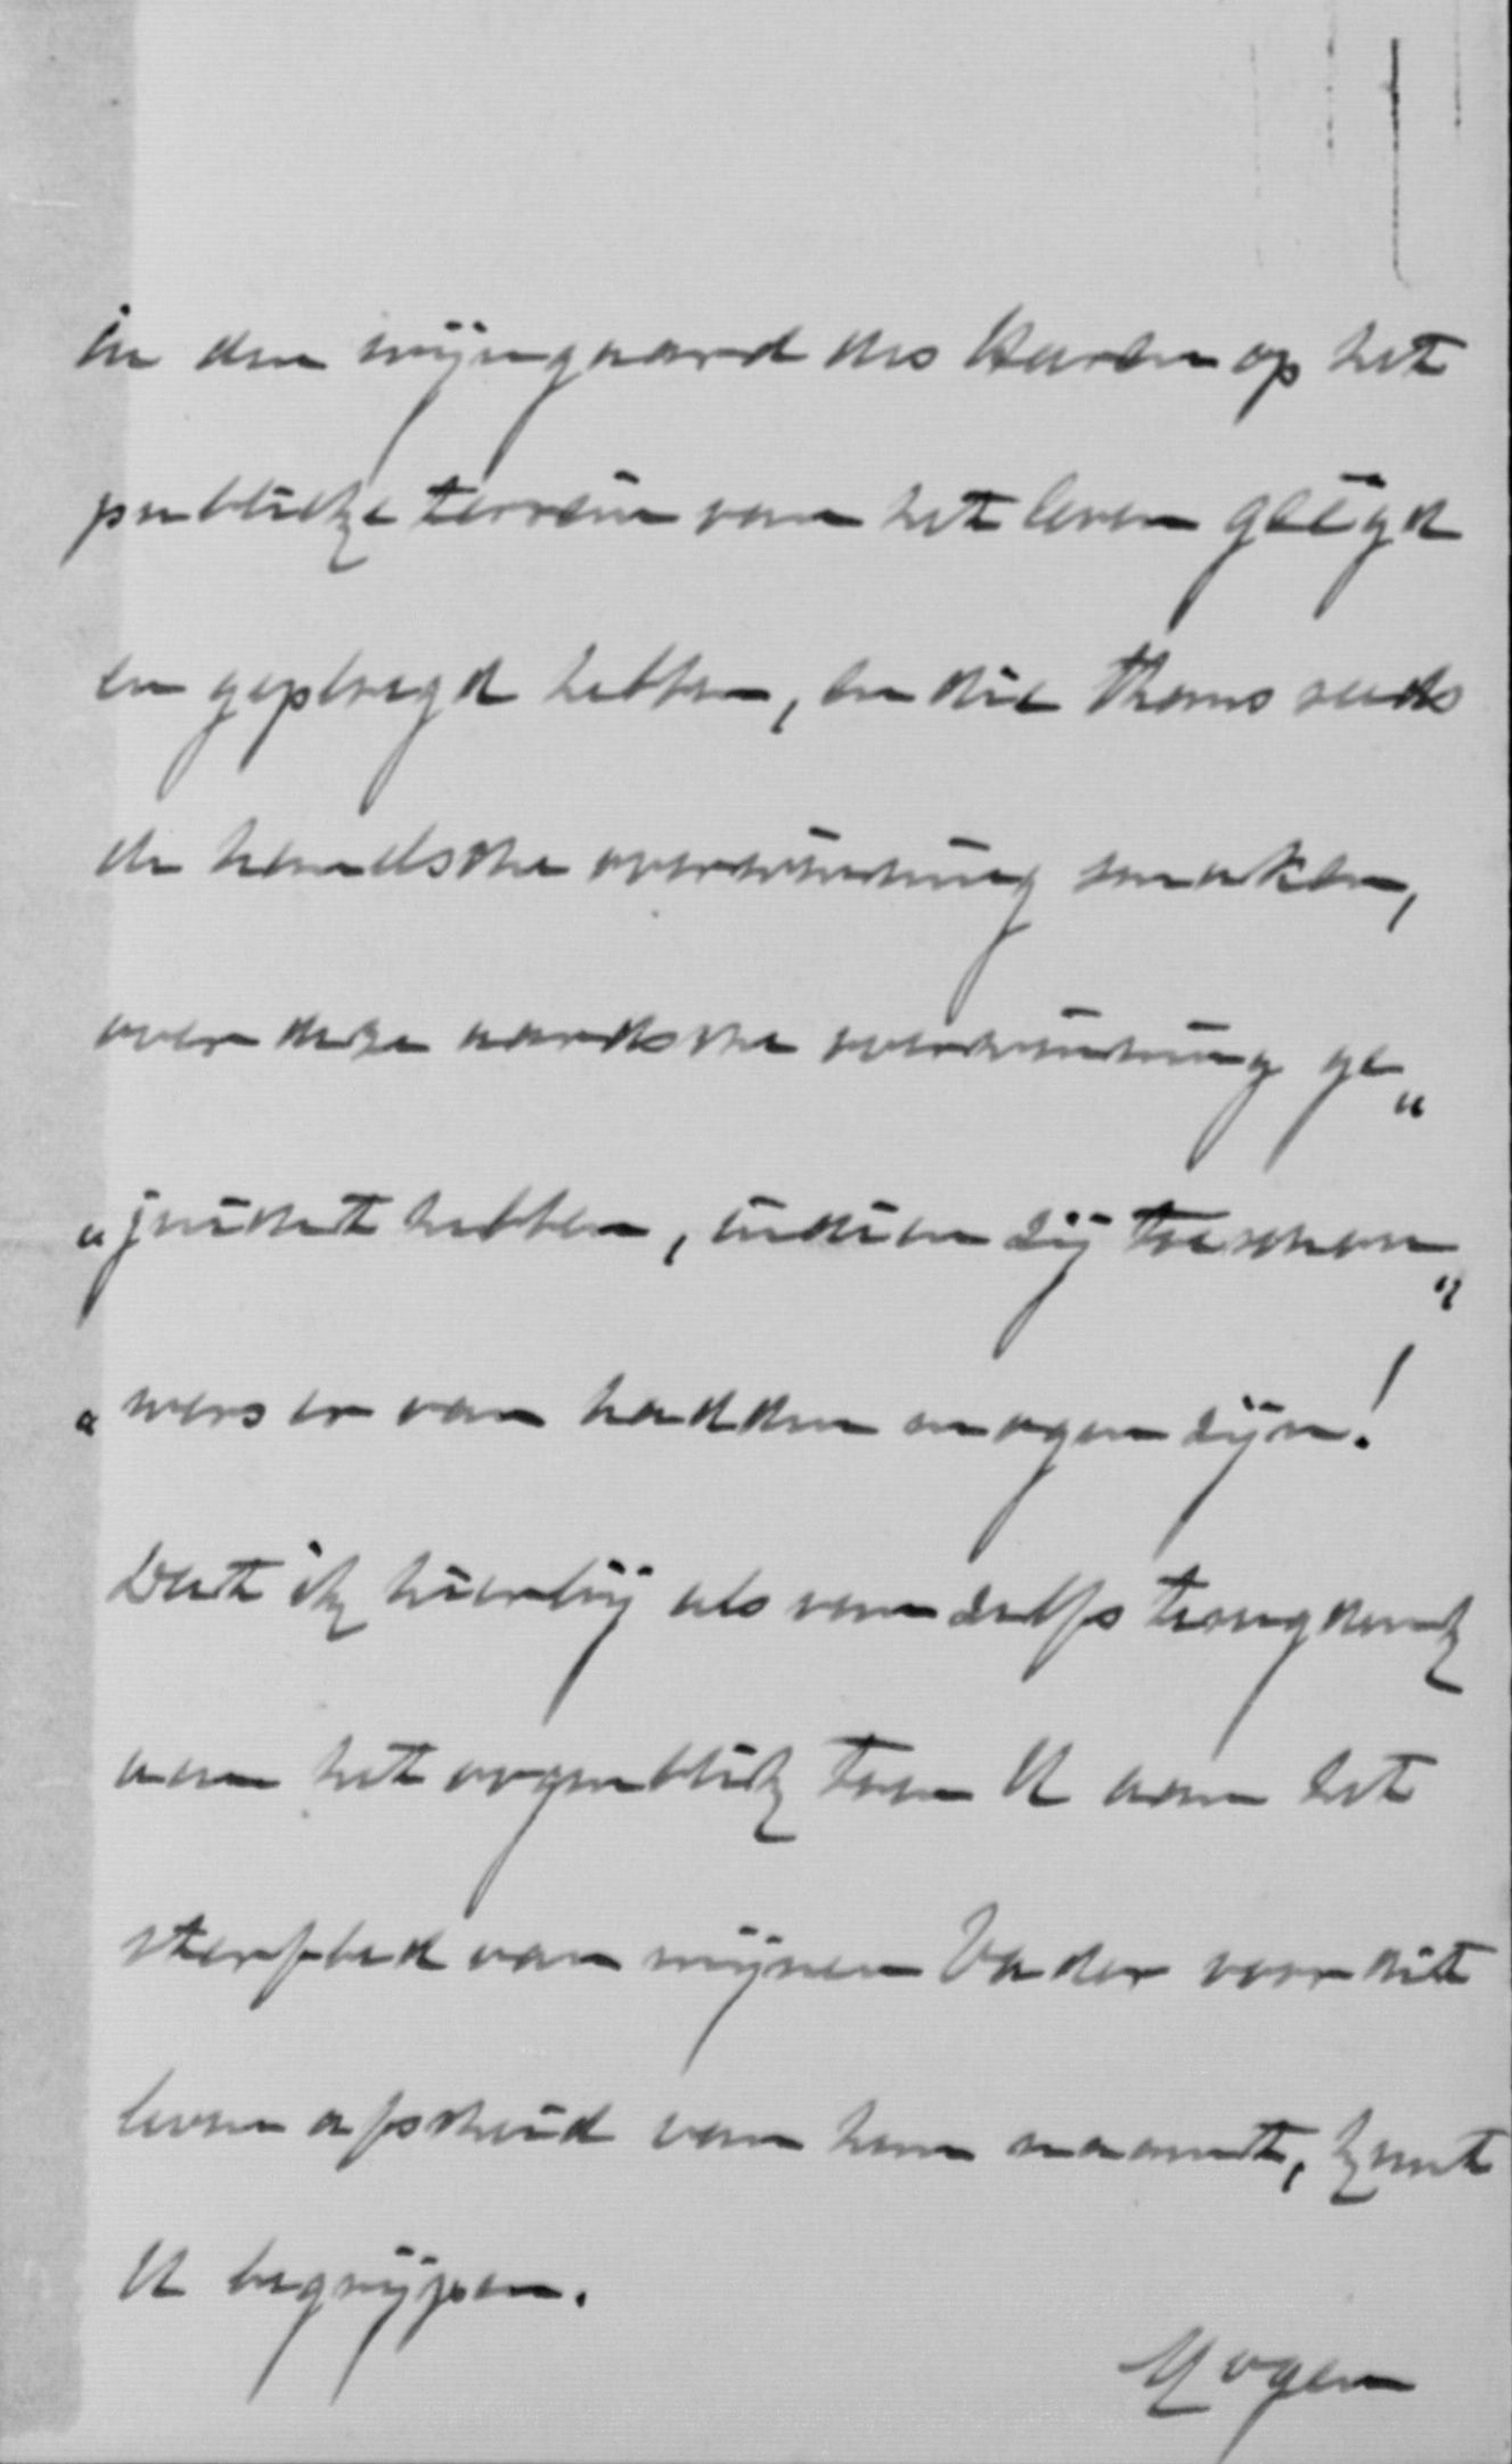 in den wijngaard des Heeren op het
publieke terrein van het leven geëgd
en geploegd hebben, en die thans reeds
de hemelsche overwinning smaken,
over deze aardsche overwinning ge„
„juicht hebben, indien zij toeschou„
„wers er van hadden mogen zijn!
Dat ik hierbij als van zelfs terugdenk
aan het oogenblik toen U aan het
sterfbed van mijnen Vader voor dit
leven afscheid van hem naamt, kunt
U begrijpen.
Mogen